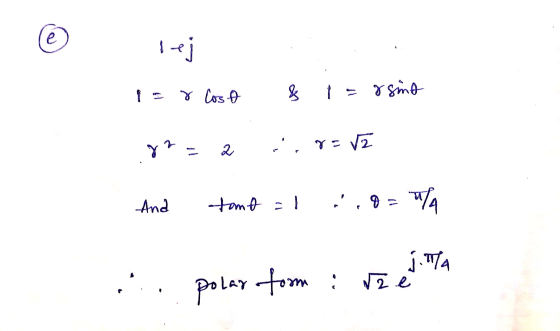 (e)
1+j
1 = r cosθ & 1 = r sinθ
r² = 2 ∴ r = √2
And tanθ = 1 ∴ θ = π/4
∴ polar form : √2 e^{j.π/4}